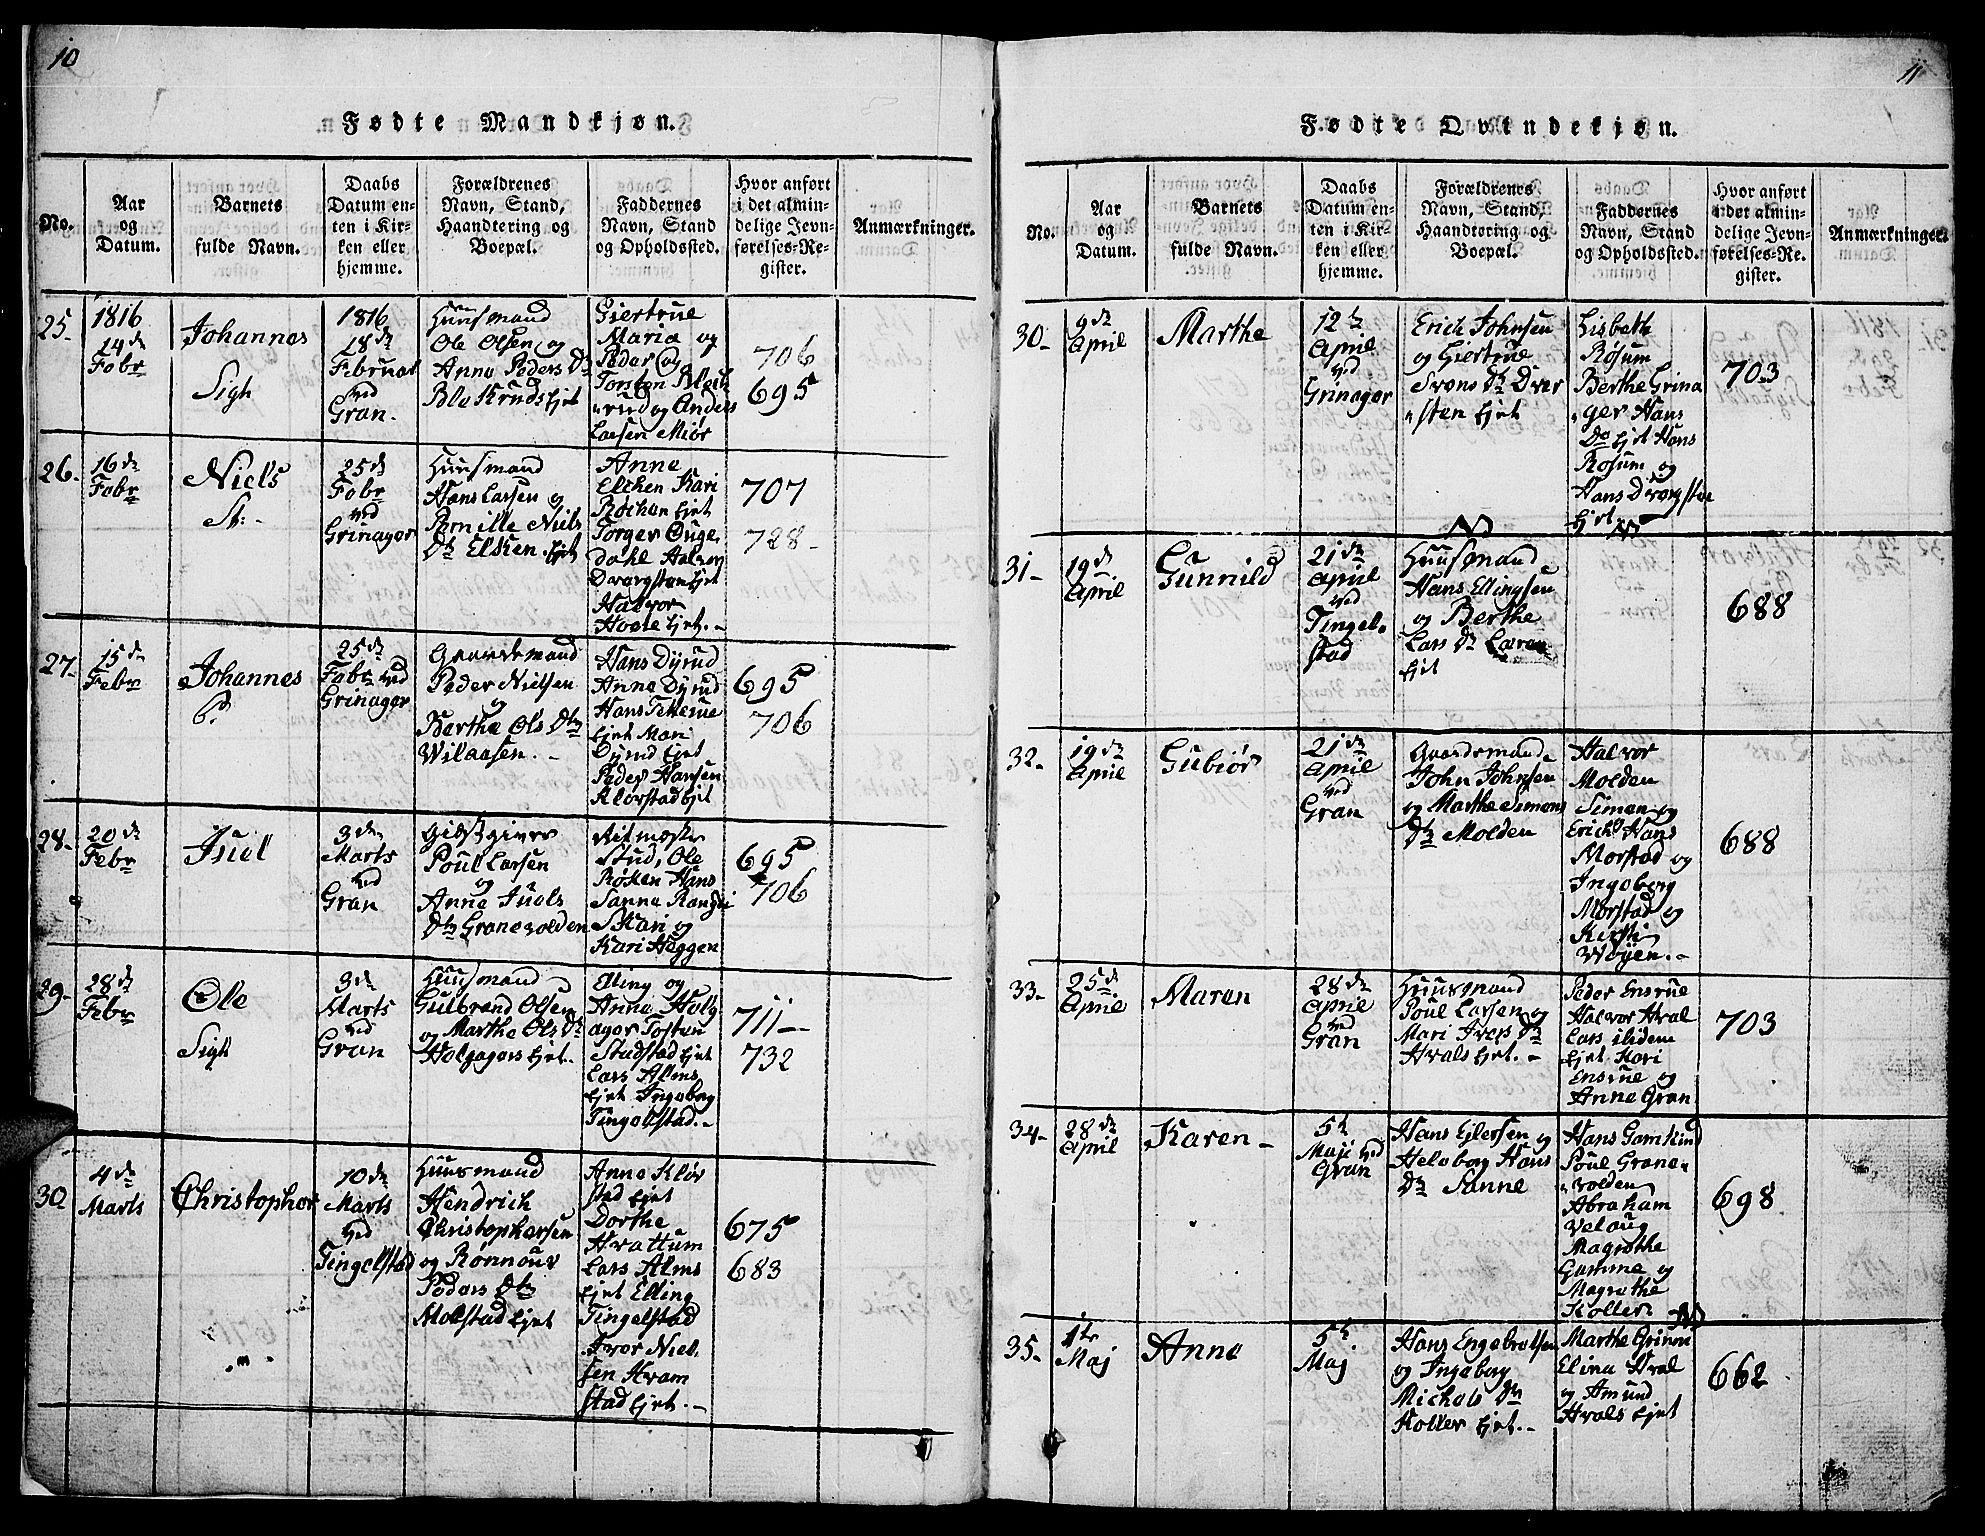 10
Fødte Mandkjøn.
No.
Aar
og
Datum.
Barnets
fulde Navn.
Daabs
Datum en-
ten i Kir-
ken eller
hjemme.
Forældrenes
Navn, Stand,
Haandtering og
Boepæl.
Faddernes
Navn, Stand
og Opholdssted.
Hvor anført
i det almin-
delige Jevn-
førelses-Re-
gister.
Anmærkninger.
25.
1816
14de
Febr
Johannes
Sigh
1816
18de
Februar
ved
Gran.
Huusmand
Ole Olsen og
Anne Peders Dr
Blekruds Ejet
Giertrue
Maria og
Peder og
Torsten
rud og Anders
Larsen Miør
706
695
26.
16de
Febr
Niels
St:
25de
Febr
ved
Grinager
Huusmand
Hans Larsen og
Pernille Niels
Dr Elken Ejet
Anne
Elken Kari
Røken Ejet
Torger Ouge
Dahl Halvor
Dvergsten Ejet
Halvor
Hoele Ejet.
707
728
27.
15de
Febr
Johannes
P.
25de
Febr ved
Grinager
Gaardemand
Peder Nielsen
og
Berthe Ols Dtr
Wilaasen.
Hans Dyrud
Anne Dyrud
Hans Tekerue
Ejet Mari
Dyrud Ejet
Peder Hansen
Alorstad Ejet
695
706
28.
20de
Febr
Juel
3de
Marts
ved
Gran
Giestgiver
Poul Larsen
og
Anne Juels
Dtr Granevolden
Ritmester
Stud, Ole
Røken Hans
Sanne Rangni
Skari og
Kari Heggen
695
706
29.
28de
Febr
Ole
Sigh
3de
Marts
ved
Gran
Huusmand
Gulbrand Olsen
og Marthe Ols Dr
Holgagers Ejet.
Elling og
Anne Holg
ager Tosten
Stadstad Ejet
Lars Alms
Ejet Ingeborg
Tingelstad.
711
732
30
4de
Marts
Christopher
10de
Marts
ved
Tingelstad
Huusmand
Hendrich
Christophersen
og Rønnour
Peders Dtr
Molstad Ejet
Anne Klør
stad Ejet
Dorthe
Hvattum
Lars Alms
Ejet Elling
Tingelstad
Iver Niel
sen Hvam
stad Ejet.
675
683
11
Fødte Qvindekjøn.
No.
Aar
og
Datum.
Barnets
fulde Navn.
Daabs
Datum en-
ten i Kir-
ken eller
hjemme.
Forældrenes
Navn, Stand,
Haandtering og
Boepæl.
Faddernes
Navn, Stand
og Opholdssted.
Hvor anført
i det almin-
delige Jevn-
førelses-Re-
gister.
Anmærkninger.
30
9de
April
Marthe
12te
April
ved
Grinager
Erich Johnsen
og Giertrue
Svens Dr Dver
sten Ejet
Lisbeth
Røsum
Berthe Grina
ger Hans
Do Ejet Hans
Røsum og
Hans Dvergsten
Ejet
703
31
19de
April
Gunnild
21de
April
ved
Tingel
stad
Huusmand
Hans Ellingsen
og Berthe
Lars Dr
Ejet
688
32
19de
April
Gubiør
21de
April
ved
Gran
Gaardsmand
John Johnsen
og Marthe Simens
Dr Molden
Halvor
Molden
Simen og
Erich Hans
Morstad og
Ingeborg
Morstad og
Kersti
Wøyen.
688
33
25de
April
Maren
28de
April
ved
Gran
Huusmand
Poul Larsen og
Mari Ivers Dr
Hvals Ejet.
Peder Ensrue
Halvor Hval
Lars ibidem
Ejet Kari
Ensrue og
Anne Gran
703
34
28de
April
Karen
5te
Maji ved
Gran
Hans Ejlersen og
Helvborg Hans
Dr Sanne
Hans Gamkind
Poul Grane
volden
Abraham
Veloug
Magrethe
Gamme og
Magrethe
Koller
698
35
1te
Maj
Anne
5te
Maj
Hans Engebretsen
og Ingeborg
Michels Dr
Koller Ejet.
Marthe Grinn
Elina Hval
og Amund
Hvals Ejet
662